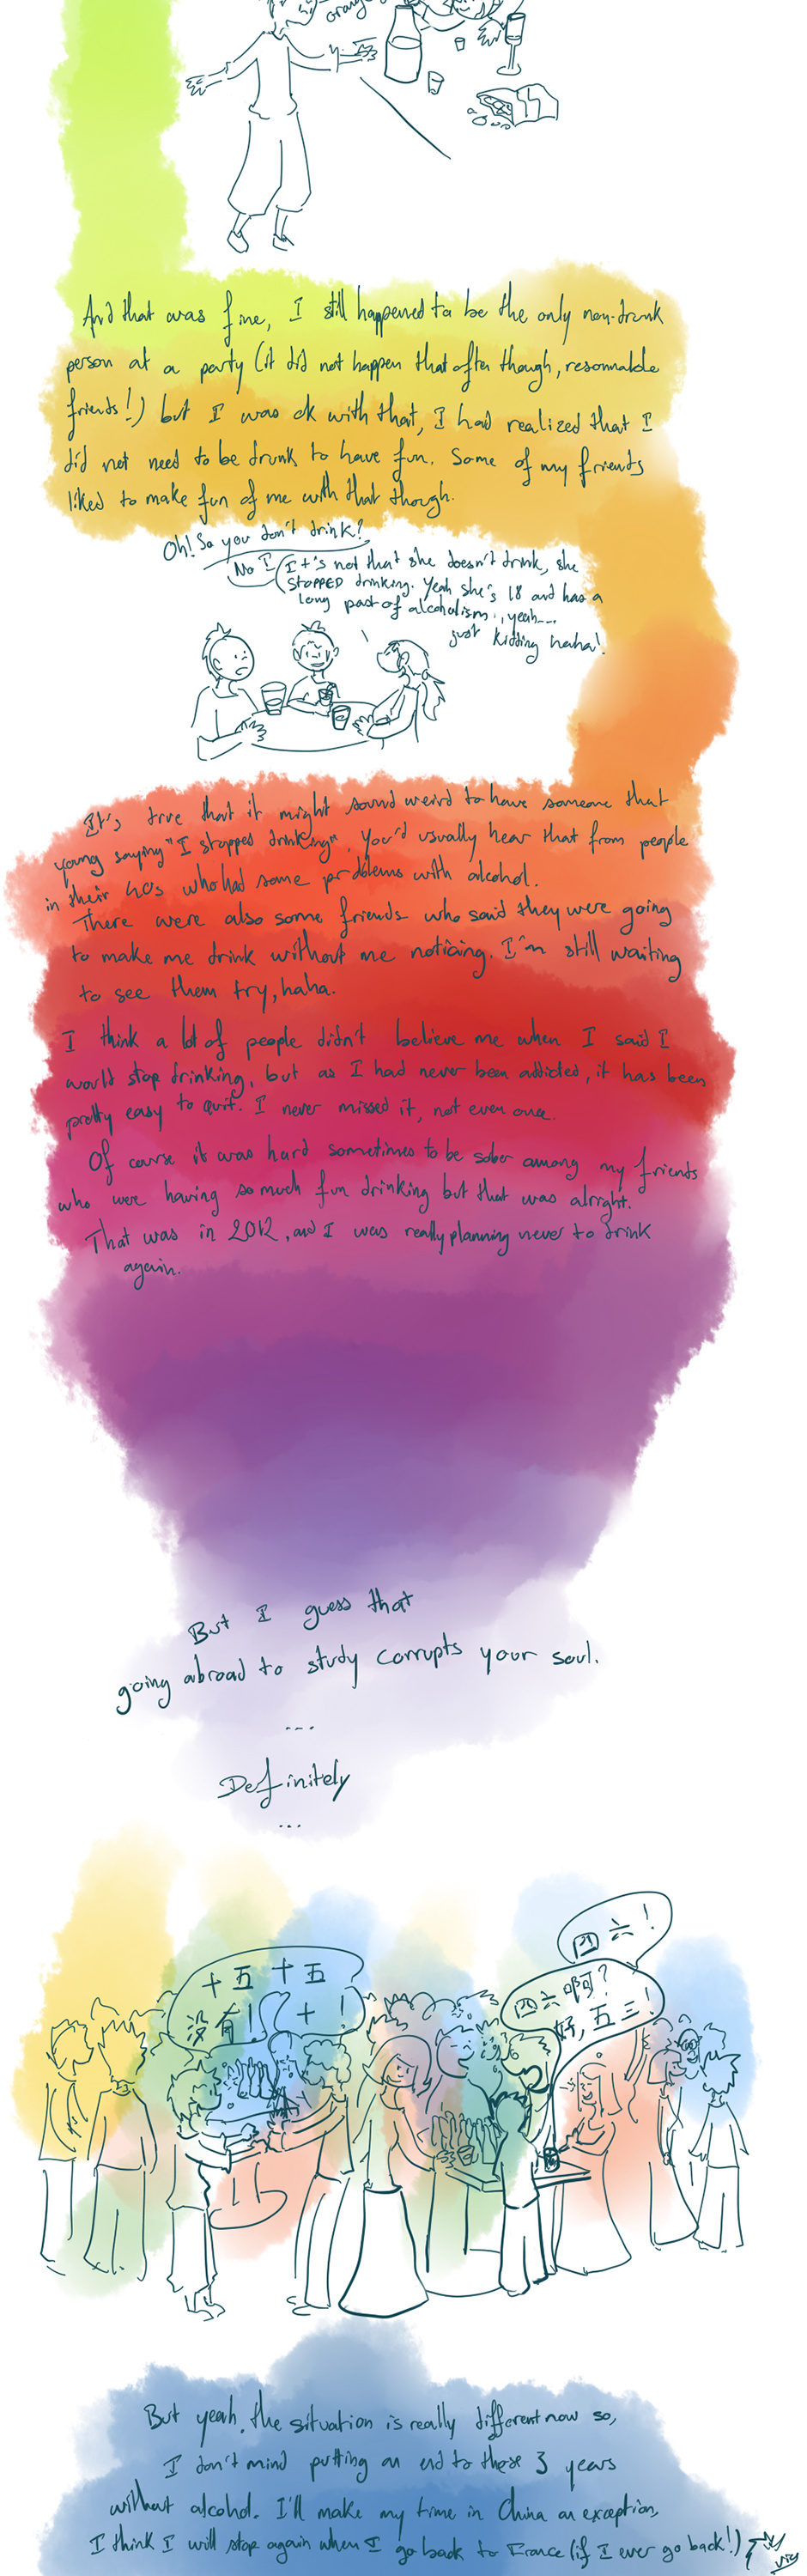 And that was fine, I still happened to be the only non-drunk
person at a party (it did not happen that often though, resonnable
friends!) but I was ok with that, I had realized that I
did not need to be drunk to have fun. Some of my friends
liked to make fun of me with that though.
Oh! So you don't drink?
No I
It's not that she doesn't drink, she
STOPPED drinking. Yeah she's 18 and has a
long past of alcoholism... yeah...
just kidding haha!
It's true that it might sound weird to have someone that
young saying "I stopped drinking", you'd usually hear that from people
in their 40s who had some problems with alcohol.
There were also some friends who said they were going
to make me drink without me noticing. I'm still waiting
to see them try, haha.
I think a lot of people didn't believe me when I said I
would stop drinking, but as I had never been addicted, it has been
pretty easy to quit. I never missed it, not even once.
Of course it was hard sometimes to be sober among my friends
who were having so much fun drinking but that was alright.
That was in 2012, and I was really planning never to drink
again.
But I guess that
going abroad to study corrupts your soul.
...
Definitely
...
四六!
十五十五
没有! 十!
四六啊?
好, 五三!
But yeah, the situation is really different now so,
I don't mind putting an end to these 3 years
without alcohol. I'll make my time in China an exception,
I think I will stop again when I go back to France (if I ever go back!)